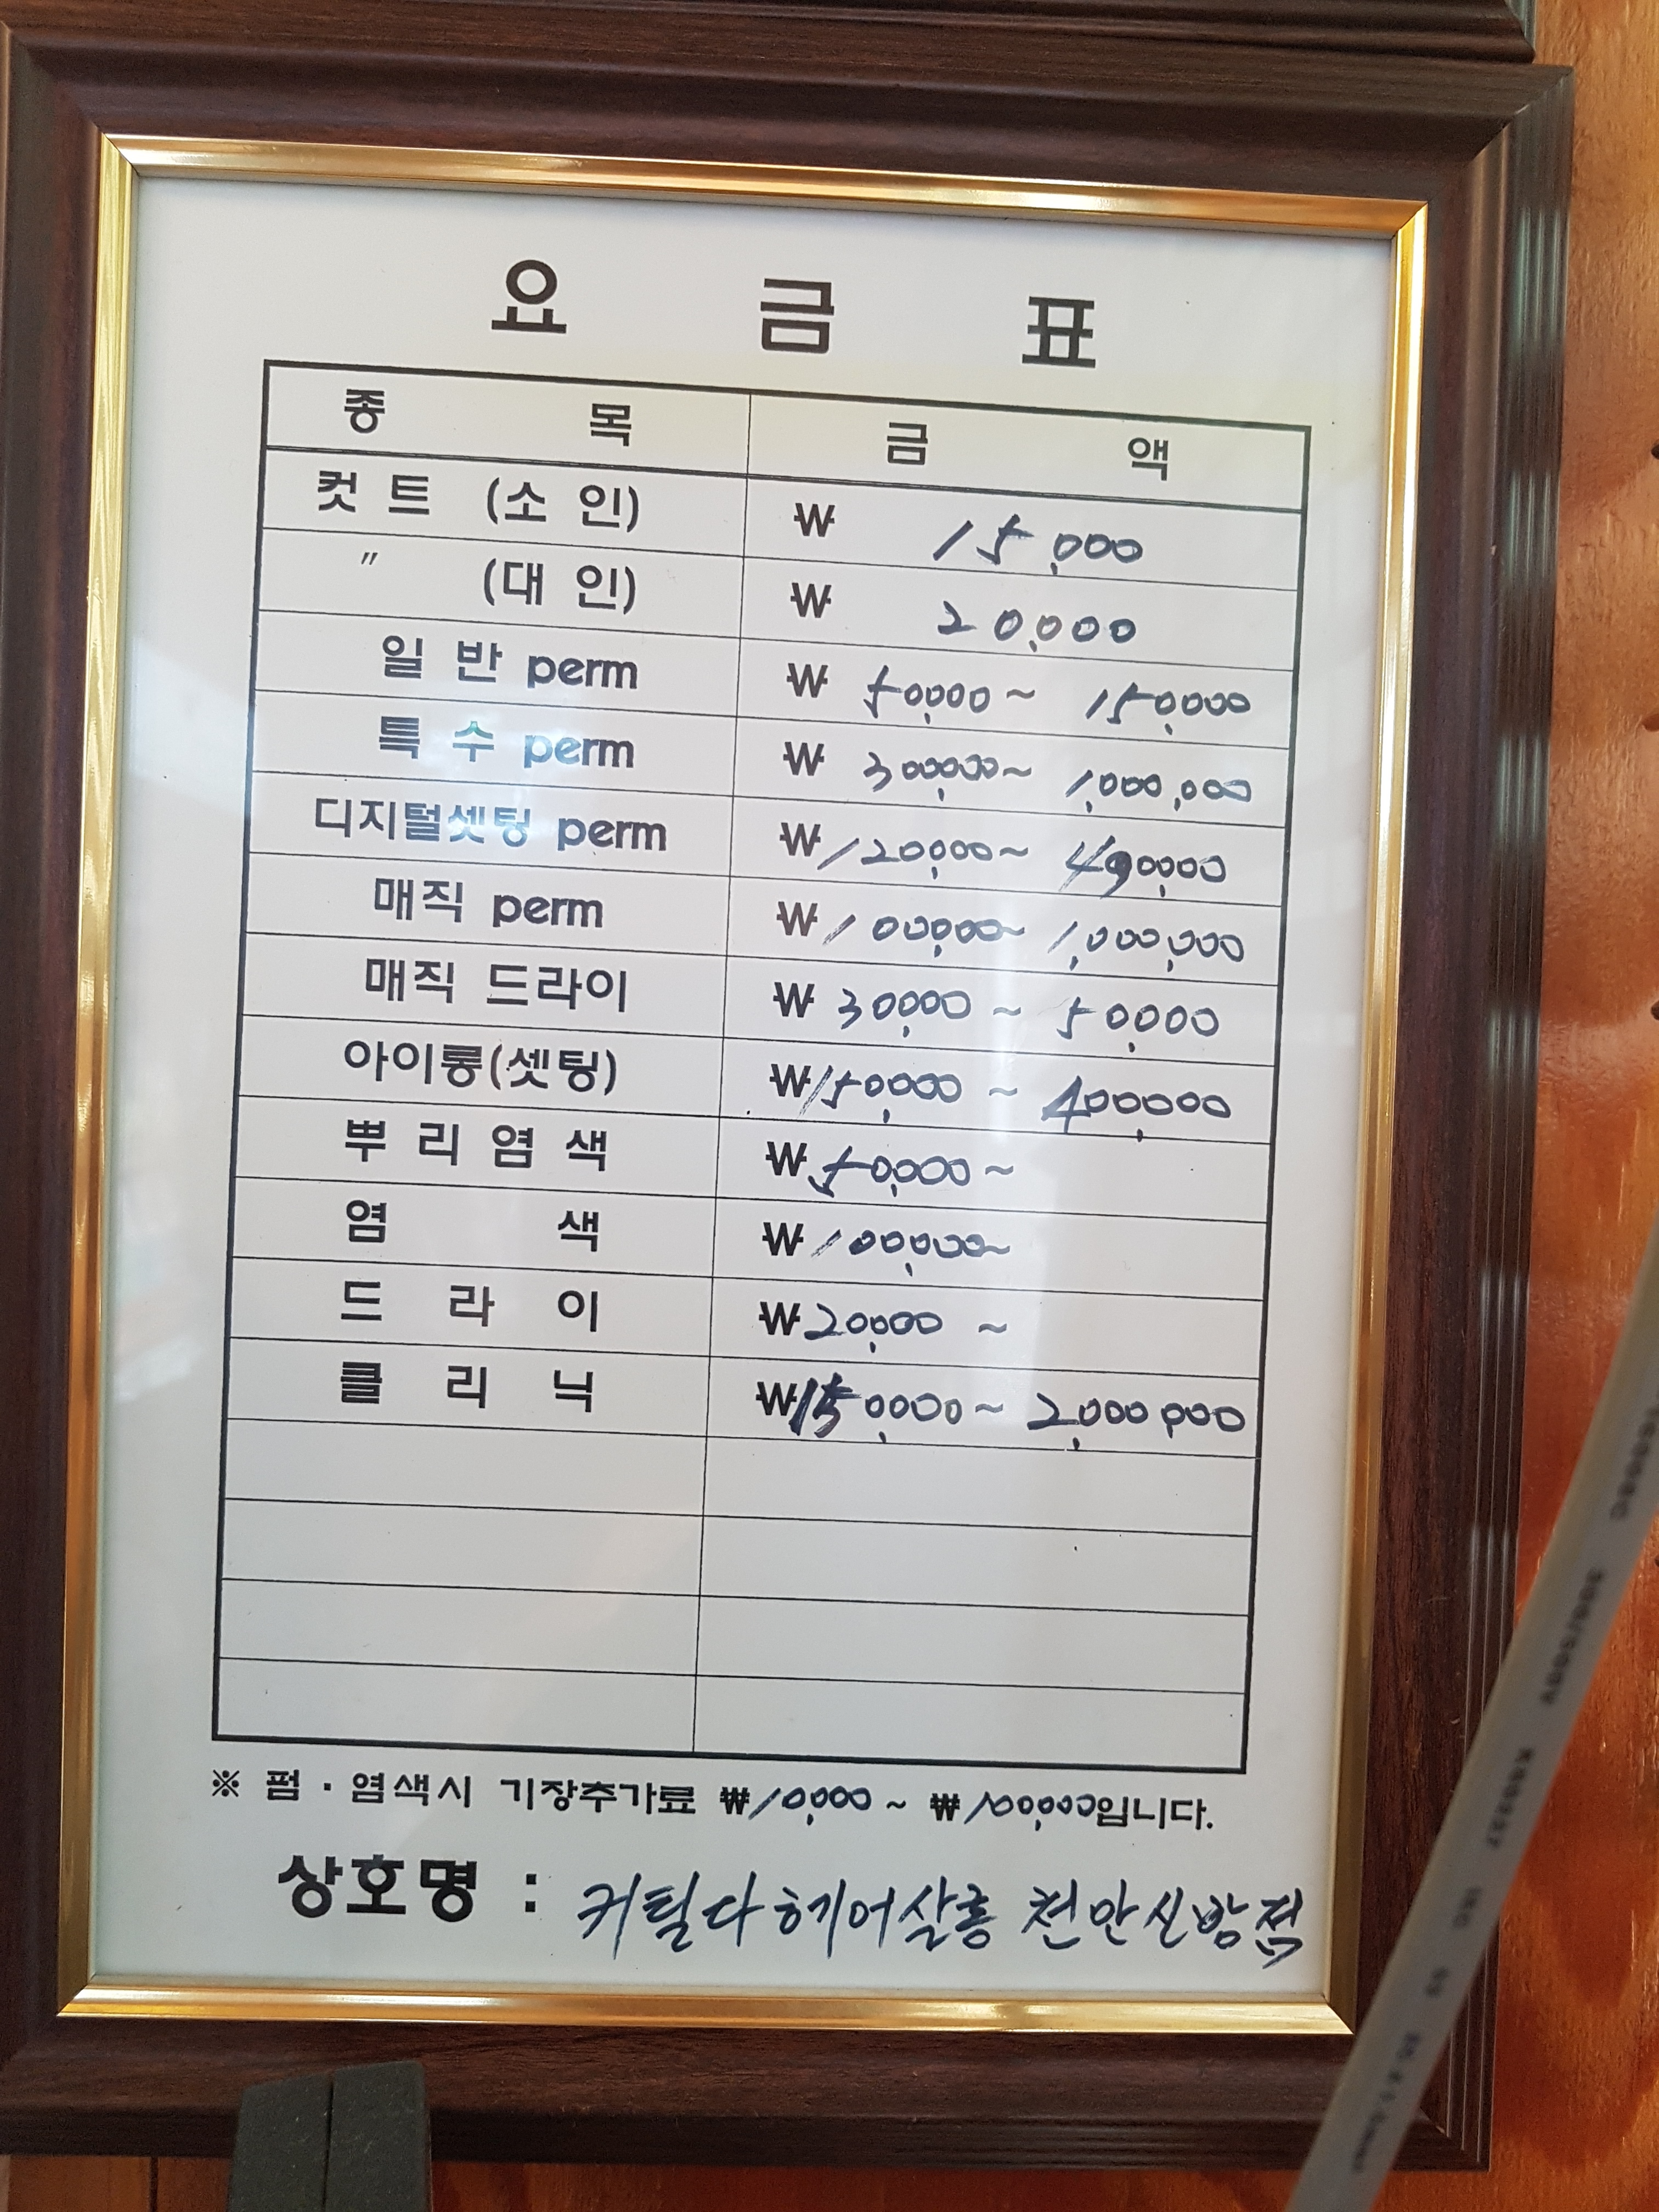 요 금 표
종 목 금 액
컷 트 (소 인) ₩ 15,000
〃 (대 인) ₩ 20,000
일 반 perm ₩ 50,000 ~ 150,000
특 수 perm ₩ 300,000 ~ 1,000,000
디지털셋팅 perm ₩ 120,000 ~ 490,000
매직 perm ₩ 100,000 ~ 1,000,000
매직 드라이 ₩ 30,000 ~ 50,000
아이롱(셋팅) ₩ 150,000 ~ 400,000
뿌 리 염 색 ₩ 50,000 ~
염 색 ₩ 100,000 ~
드 라 이 ₩ 20,000 ~
클 리 닉 ₩ 150,000 ~ 2,000,000
※ 펌 · 염색시 기장추가료 ₩10,000 ~ ₩100,000입니다.
상호명 : 커틸다헤어살롱 천안신방점